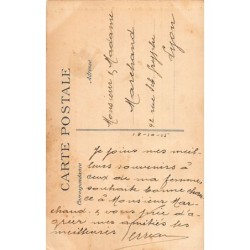 CARTE POSTALE
Correspondance
Adresse
Monsieur & Madame
Marchand
22 rue St
Lyon
18-10-15
Je joins mes meil-
leurs souvenirs à
ceux de ma femme
souhaite bonne chan
ce à Monsieur Mar-
chand, & vous prie d'a-
gréer mes amitiés les
meilleures